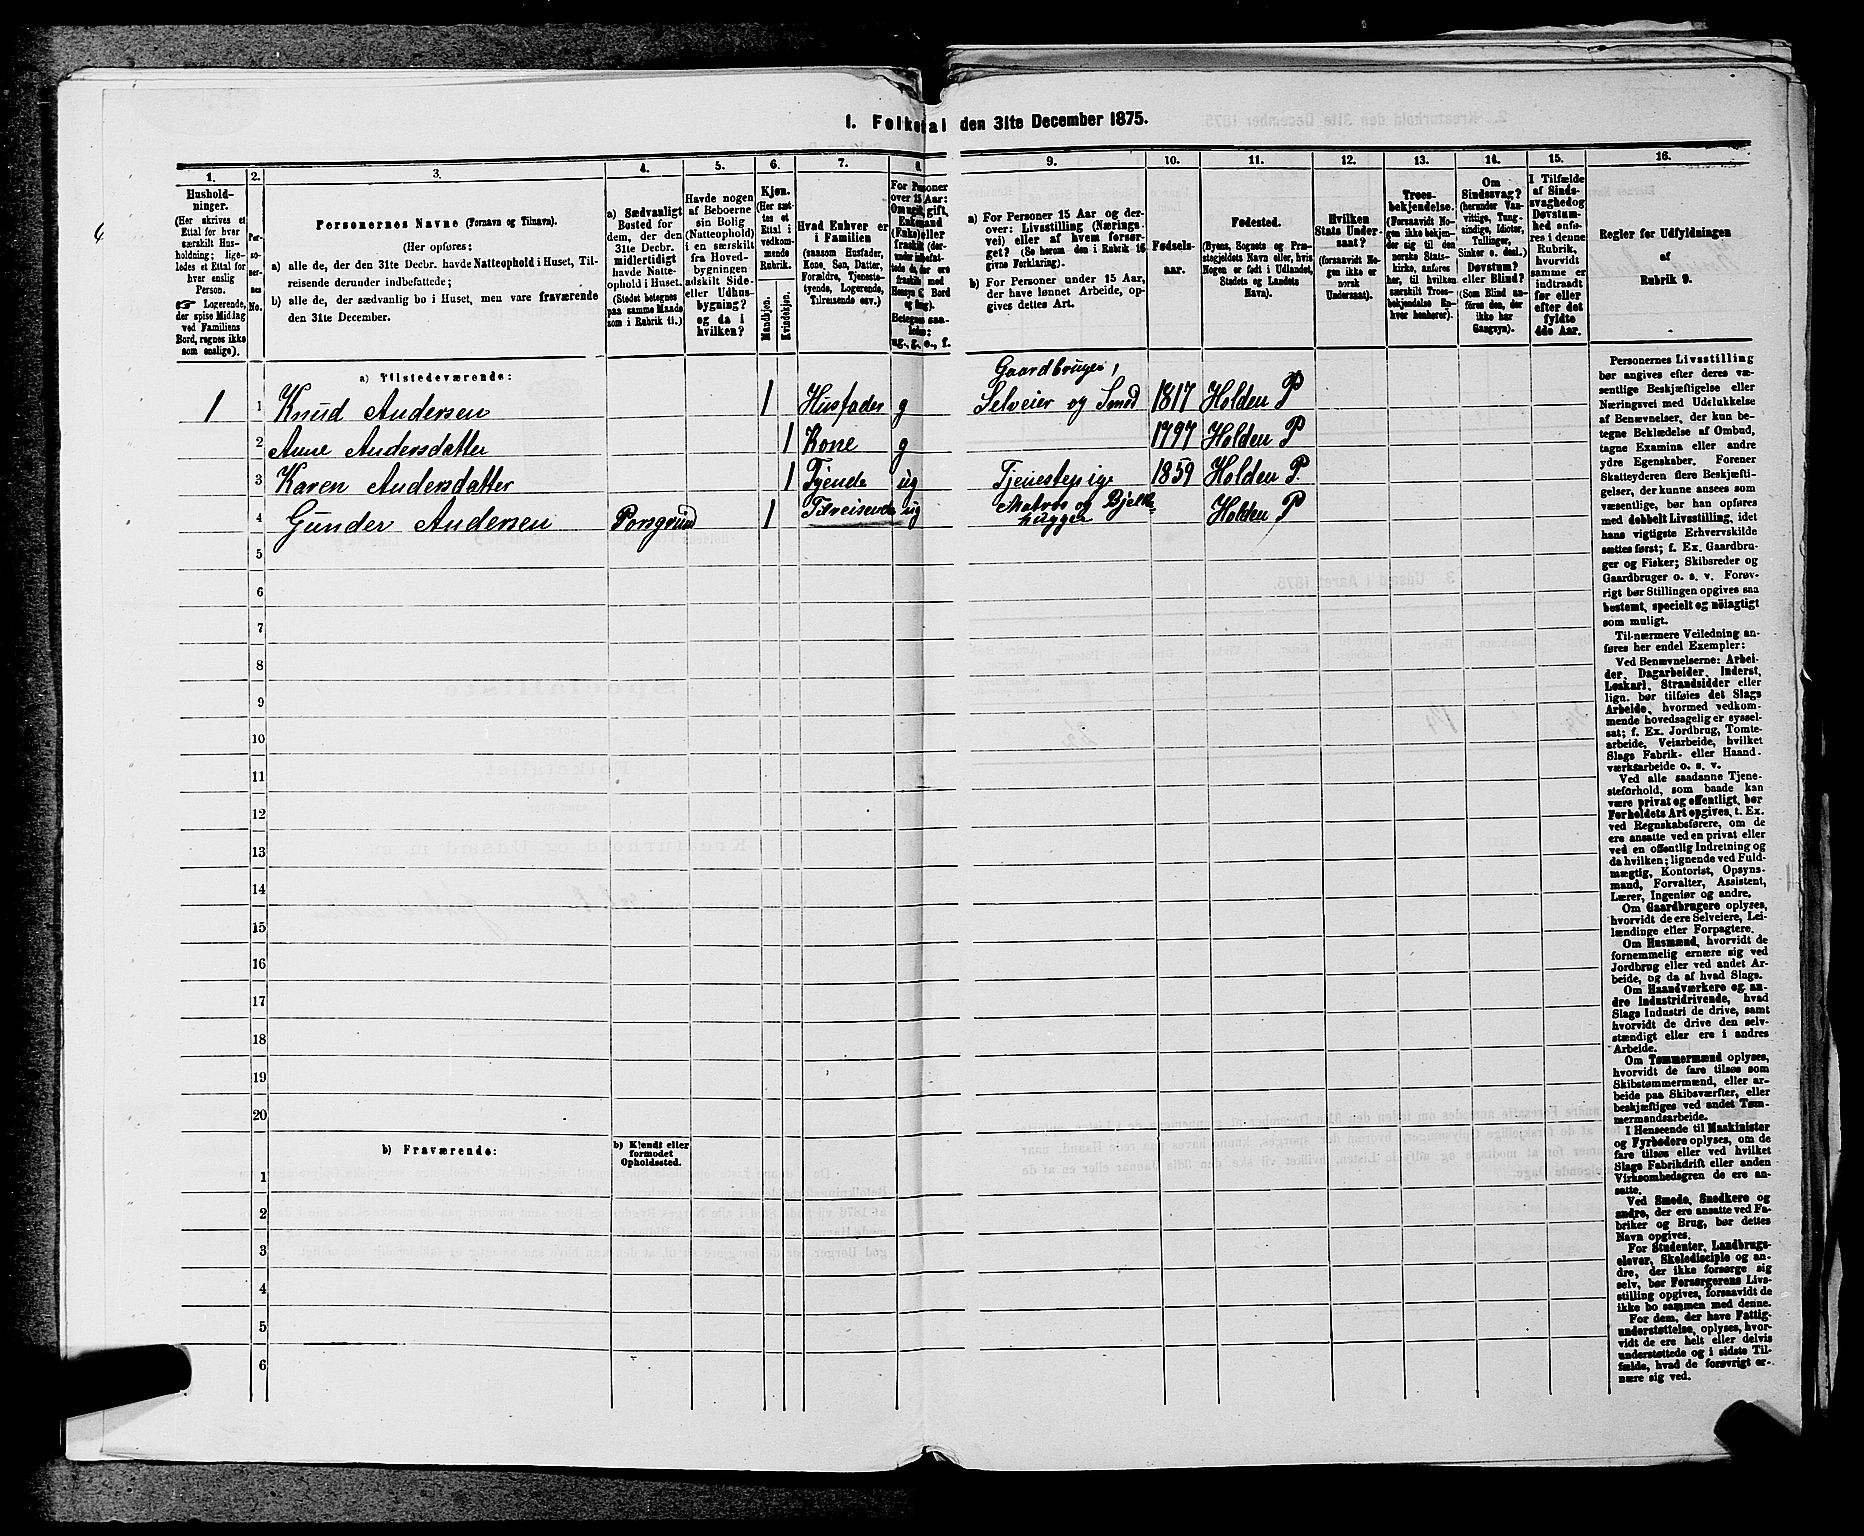 1. Folketal den 31te December 1875.
1. 2. 3. 4. 5. 6. 7. 8. 9. 10. 11. 12. 13. 14. 15. 16.
Hushold-
ninger.
(Her skrives et
Ettal for hver
særskilt Hus-
holdning; lige-
ledes et Ettal for
hver enslig
Person.
☞ Logerende,
der spise Middag
ved Familiens
Bord, regnes ikke
som enslige).
Per-
so-
ner-
nes
No.
Personernes Navne (Fornavn og Tilnavn).
(Her opføres:
a) alle de, der den 31te Decbr. havde Natteophold i Huset, Til-
reisende derunder indbefattede;
b) alle de, der sædvanlig bo i Huset, men vare fraværende
den 31te December.
a) Sædvanligt
Bosted for
dem, der den
31te Decbr.
midlertidigt
havde Natte-
ophold i Huset.
(Stedet betegnes
paa samme Maade
som i Rubrik 11.)
Havde nogen
af Beboerne
sin Bolig
(Natteophold)
i en særskilt
fra Hoved-
bygningen
adskilt Side-
eller Udhus-
bygning?
og da i
hvilken?
Kjøn.
(Her sæt-
tes et
Ettal i
vedkom-
mende
Rubrik.
Mandkjøn.
Kvindekjøn.
Hvad Enhver er
i Familien
(saasom Husfader,
Kone, Søn, Datter,
Forældre, Tjeneste-
tyende, Logerende,
Tilreisende osv.)
For Personer
over 15 Aar:
Om ugift, gift,
Enkemand
(Enke) eller
fraskilt (der-
under indbefat-
tede de, der ere
fraskilte med
Hensyn til Bord
og Seng).
Betegnes saa-
ledes:
ug., g., e., f.
a) For Personer 15 Aar og der-
over: Livsstilling (Nærings-
vei) eller af hvem forsør-
get? (Se herom den i Rubrik 16
givne Forklaring).
b) For Personer under 15 Aar,
der have lønnet Arbeide, op-
gives dettes Art.
Fødsels-
aar.
Fødested.
(Byens, Sognets og Præ-
stegjeldets Navn eller, hvis
Nogen er født i Udlandet,
Stedets og Landets
Navn).
Hvilken
Stats Under-
saat?
(forsaavidt No-
gen ikke er
norsk
Undersaat).
Troes-
bekjendelse.
(Forsaavidt No-
gen ikke bekjen-
der sig til den
norske Stats-
kirke, anføres
her, til hvilken
særskilt Troes-
bekjendelse En-
hver henhører).
Om
Sindssvag?
(herunder Van-
vittige, Tung-
sindige, Idioter,
Tullinger,
Sinker o. desl.).
Døvstum?
eller Blind?
(Som Blind an-
føres den, der
ikke har
Gangsyn).
I Tilfælde
af Sinds-
svaghed og
Døvstum-
hed anfø-
res i denne
Rubrik,
hvorvidt
samme er
indtraadt
før eller
efter det
fyldte
4de Aar.
Regler for Udfyldningen
af
Rubrik 9.
a) Tilstedeværende:
Gaardbruger,
1 1 Knud Andersen 1 Husfader g Selveier og Smed 1817 Holden P
2 Anne Andersdatter 1 Kone g 1797 Holden P
3 Karen Andersdatter 1 Tyende ug Tjenestepige 1859 Holden P.
4 Gunder Andersen Porsgrund 1 Tilreisende ug Matros og Bjelke- Holden P
hugger
5
6
7
8
9
10
11
12
13
14
15
16
17
18
19
20
b) Fraværende:
b) Kjendt eller
formodet
Opholdssted.
1
2
3
4
5
6
Personernes Livsstilling
bør angives efter deres væ-
sentlige Beskjæftigelse eller
Næringsvei med Udelukkelse
af Benævnelser, der kun be-
tegne Beklædelse af Ombud,
tagne Examina eller andre
ydre Egenskaber. Forener
Skatteyderen flere Beskjæfti-
gelser, der kunne ansees som
væsentlige, bør han opføres
med dobbelt Livsstilling, idet
hans vigtigste Erhvervskilde
sættes først; f. Ex. Gaardbru-
ger og Fisker; Skibsreder og
Gaardbruger o. s. v. Forøv-
rigt bør Stillingen opgives saa
bestemt, specielt og nöiagtigt
som muligt.
Til nærmere Veiledning an-
føres her endel Exempler:
Ved Benævnelserne: Arbei-
der, Dagarbeider, Inderst,
Løskarl, Strandsidder eller
lign. bør tilføies det Slags
Arbeide, hvormed vedkom-
mende hovedsagelig er syssel-
sat; f. Ex. Jordbrug, Tomte-
arbeide, Veiarbeide, hvilket
Slags Fabrik- eller Haand-
værksarbeide o. s. v.
Ved alle saadanne Tjene-
steforhold, som baade kan
være privat og offentligt, bør
Forholdets Art opgives, t. Ex.
ved Regnskabsførere, om de
ere ansatte ved en privat eller
ved en offentlig Indretning og
da hvilken; lignende ved Fuld-
mægtig, Kontorist, Opsyns-
mand, Forvalter, Assistent,
Lærer, Ingeniør og andre.
Om Gaardbrugere oplyses,
hvorvidt de ere Selveiere, Lei-
lændinge eller Forpagtere.
Om Husmænd, hvorvidt de
fornemmelig ernære sig ved
Jordbrug eller ved andet Ar-
beide, og da af hvad Slags.
Om Haandværkere og an-
dre Industridrivende, hvad
Slags Industri de drive, samt
hvorvidt de drive den selv-
stændigt eller ere i andres
Arbeide.
Om Tømmermænd oplyses,
hvorvidt de fare tilsøs som
Skibstømmermænd, eller ar-
beide paa Skibsværfter, eller
beskjæftiges ved andet Tøm-
mermandsarbeide.
I Henseende til Maskinister
og Fyrbødere oplyses, om de
fare tilsøs eller ved hvilket
Slags Fabrikdrift eller anden
Virksomhedsgren de ere an-
satte.
Ved Smede, Snedkere og
andre, der ere ansatte ved Fa-
briker og Brug, bør dettes
Navn opgives.
For Studenter, Landbrugs-
elever, Skoledisciple og an-
dre, der ikke forsørge sig
selv, bør Forsørgerens Livs-
stilling opgives, forsaavidt de
ikke bo sammen med denne.
For dem, der have Fattig-
understøttelse, oplyses, hvor-
vidt de ere helt eller delvis
understøttede og i sidste Til-
fælde, hvad de forøvrigt er-
nære sig ved.